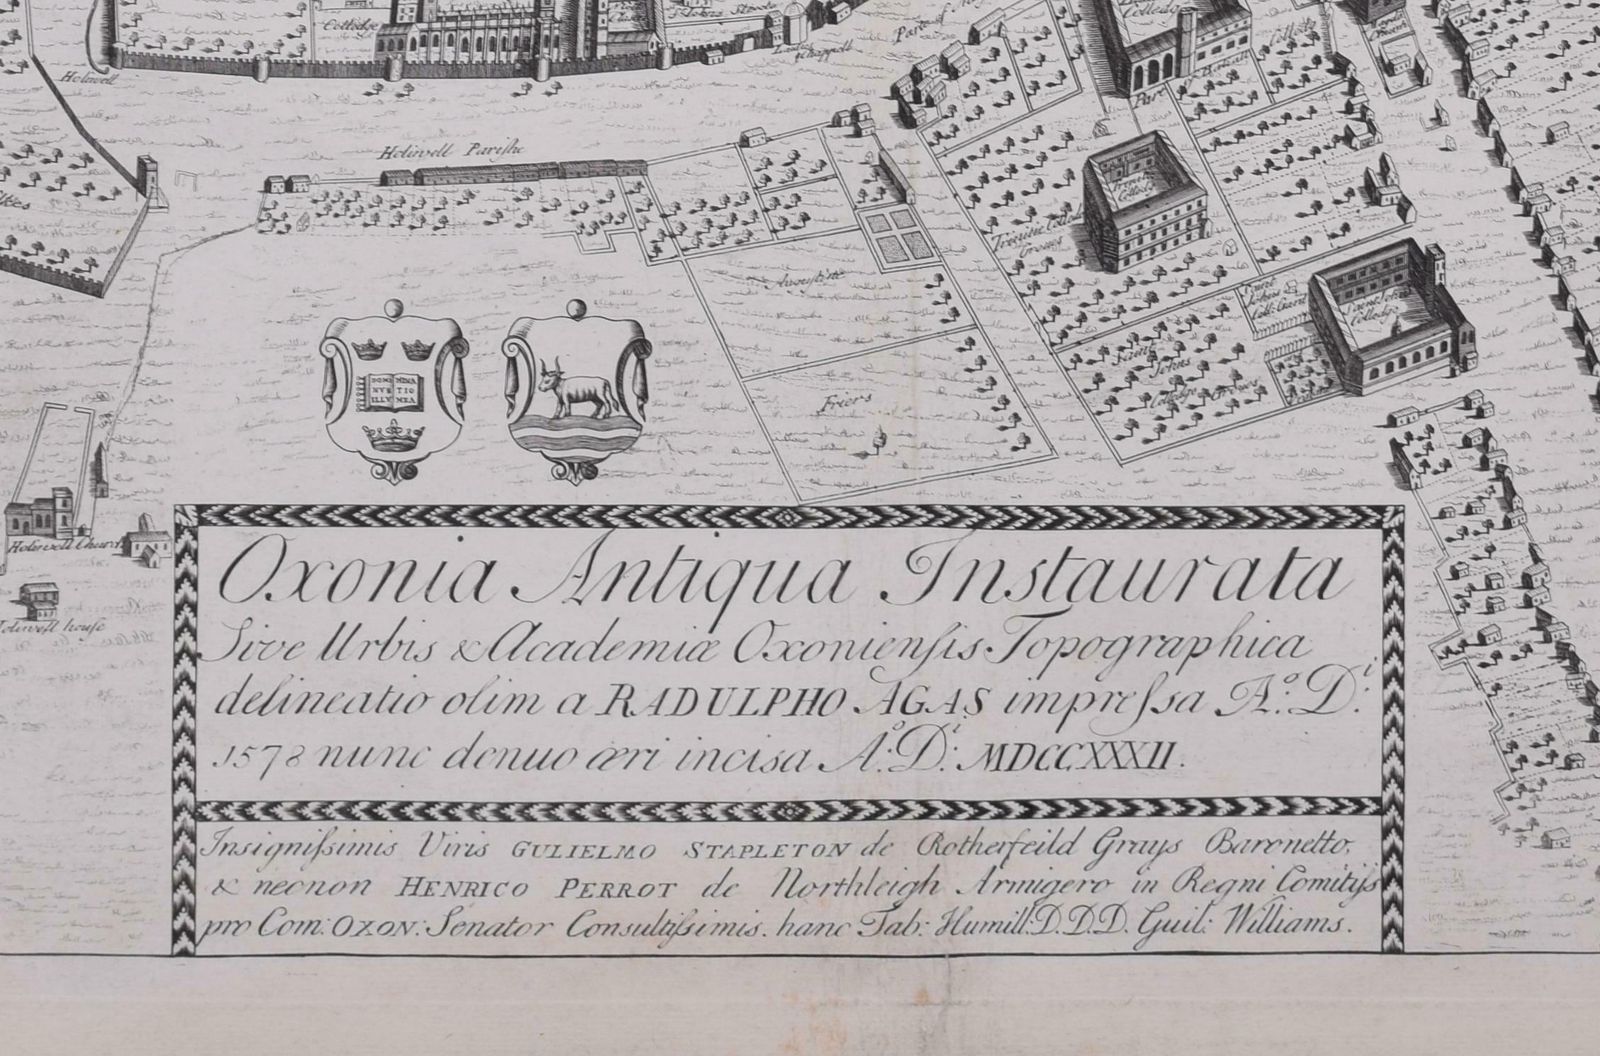 Colledge
Holiwell
Holiwell Parishe
Trinitie Colledg
Groues
Augustine
Friers
Saint
Johns
Colledge Groues
Colledge
DOMI NINA
NVS TIO
ILLV MEA
Holiwell Church
Holiwell house
Oxonia Antiqua Instaurata
Sive Urbis & Academiæ Oxoniensis Topographica
delineatio olim a RADULPHO AGAS impressa A.º D.ⁱ
1578 nunc denuo æri incisa A.º D.ⁱ MDCCXXXII.
Insignissimis Viris GULIELMO STAPLETON de Rotherfeild Grays Baronetto,
& necnon HENRICO PERROT de Northleigh Armigero in Regni Comitijs
pro Com: OXON: Senator Consultissimis. hanc Tab: Humill. D.D.D. Guil: Williams.